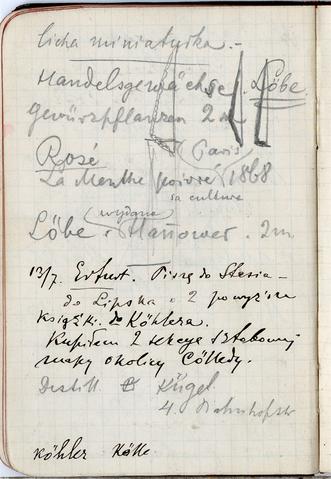 licha miniaturka. –
Handelsgewächse. Löbe.
Gewürzpflanzen 2 m
Rosé (Paris)
La Menthe poivré 1868
sa culture
(wydane)
Löbe. Hannower. 2m.
13/7. Erfurt. Piszę do Stasia –
do Lipska o 2 powyższe
książki. do Köhlera.
Kupiłem 2 sekcye sztabowej
mapy okolicy Cölledy.
Destill. Kügel
4. Bahnhofstr
Köhler Kölle